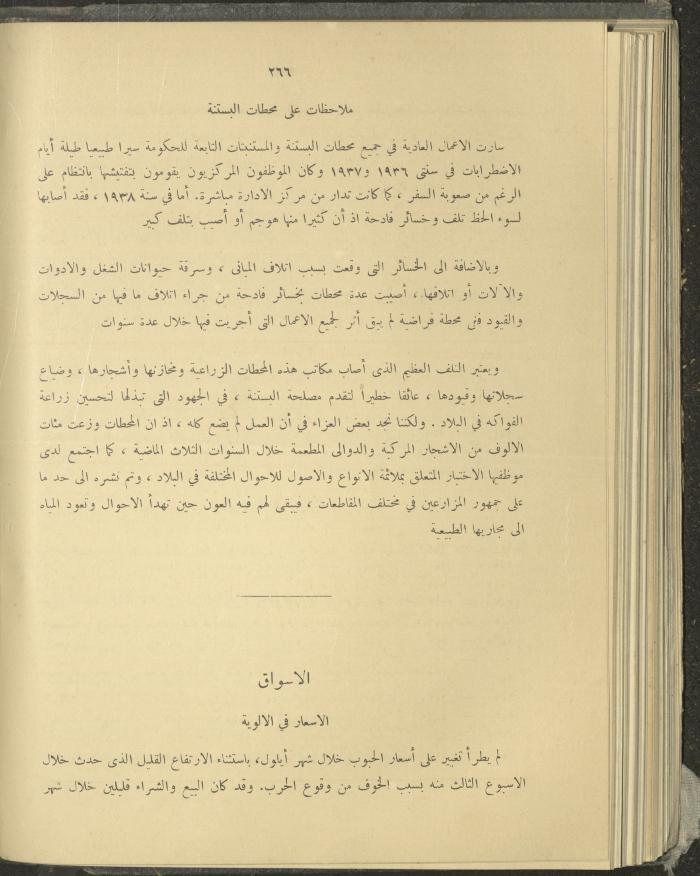 ٢٦٦
ملاحظات على محطات البستنة
سارت الاعمال العادية في جميع محطات البستنة والمستنبتات التابعة للحكومة سيرا طبيعيا طيلة أيام
الاضطرابات في سنتى ١٩٣٦ و١٩٣٧ وكان الموظفون المركزيون يقومون بتفتيشها بانتظام على
الرغم من صعوبة السفر ، كما كانت تدار من مركز الادارة مباشرة. أما في سنة ١٩٣٨ ، فقد أصابها
لسوء الحظ تلف وخسائر فادحة اذ أن كثيرا منها هوجم أو أصيب بتلف كبير
وبالاضافة الى الخسائر التى وقعت بسبب اتلاف المبانى ، وسرقة حيوانات الشغل والادوات
والآلات أو اتلافها ، أصيبت عدة محطات بخسائر فادحة من جراء اتلاف ما فيها من السجلات
والقيود ففى محطة فراضية لم يبق أثر لجميع الاعمال التى أجريت فيها خلال عدة سنوات
ويعتبر التلف العظيم الذى أصاب مكاتب هذه المحطات الزراعية ومخازنها وأشجارها ، وضياع
سجلاتها وقيودها ، عائقا خطيراً لتقدم مصلحة البستنة ، في الجهود التى تبذلها لتحسين زراعة
الفواكه في البلاد . ولكننا نجد بعض العزاء في أن العمل لم يضع كله ، اذ ان المحطات وزعت مئات
الالوف من الاشجار المركبة والدوالى المطعمة خلال السنوات الثلاث الماضية ، كما اجتمع لدى
موظفيها الاختبار المتعلق بملائمة الانواع والاصول للاحوال المختلفة في البلاد ، وتم نشره الى حد ما
على جمهور المزارعين في مختلف المقاطعات ، فيبقى لهم فيه العون حين تهدأ الاحوال وتعود المياه
الى مجاريها الطبيعية
الاسواق
الاسعار في الالوية
لم يطرأ تغيير على أسعار الحبوب خلال شهر أيلول، باستثناء الارتفاع القليل الذى حدث خلال
الاسبوع الثالث منه بسبب الخوف من وقوع الحرب. وقد كان البيع والشراء قليلين خلال شهر